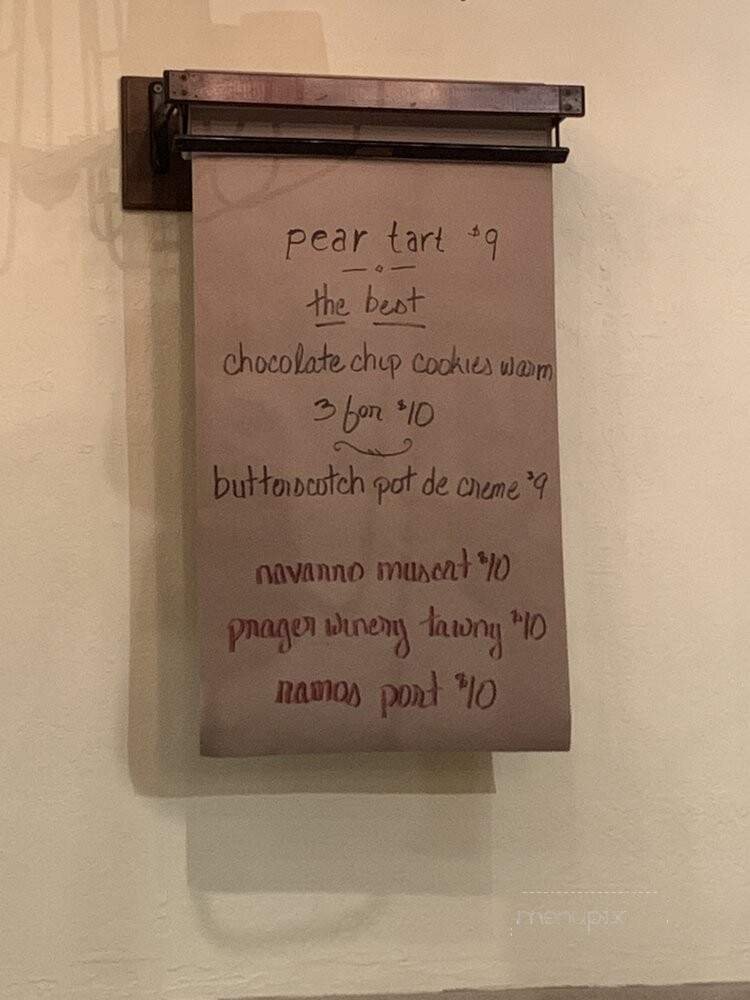 pear tart $9
the best
chocolate chip cookies warm
3 for $10
butterscotch pot de creme $9
navarro muscat $10
prager winery tawny $10
ramos port $10
menupix